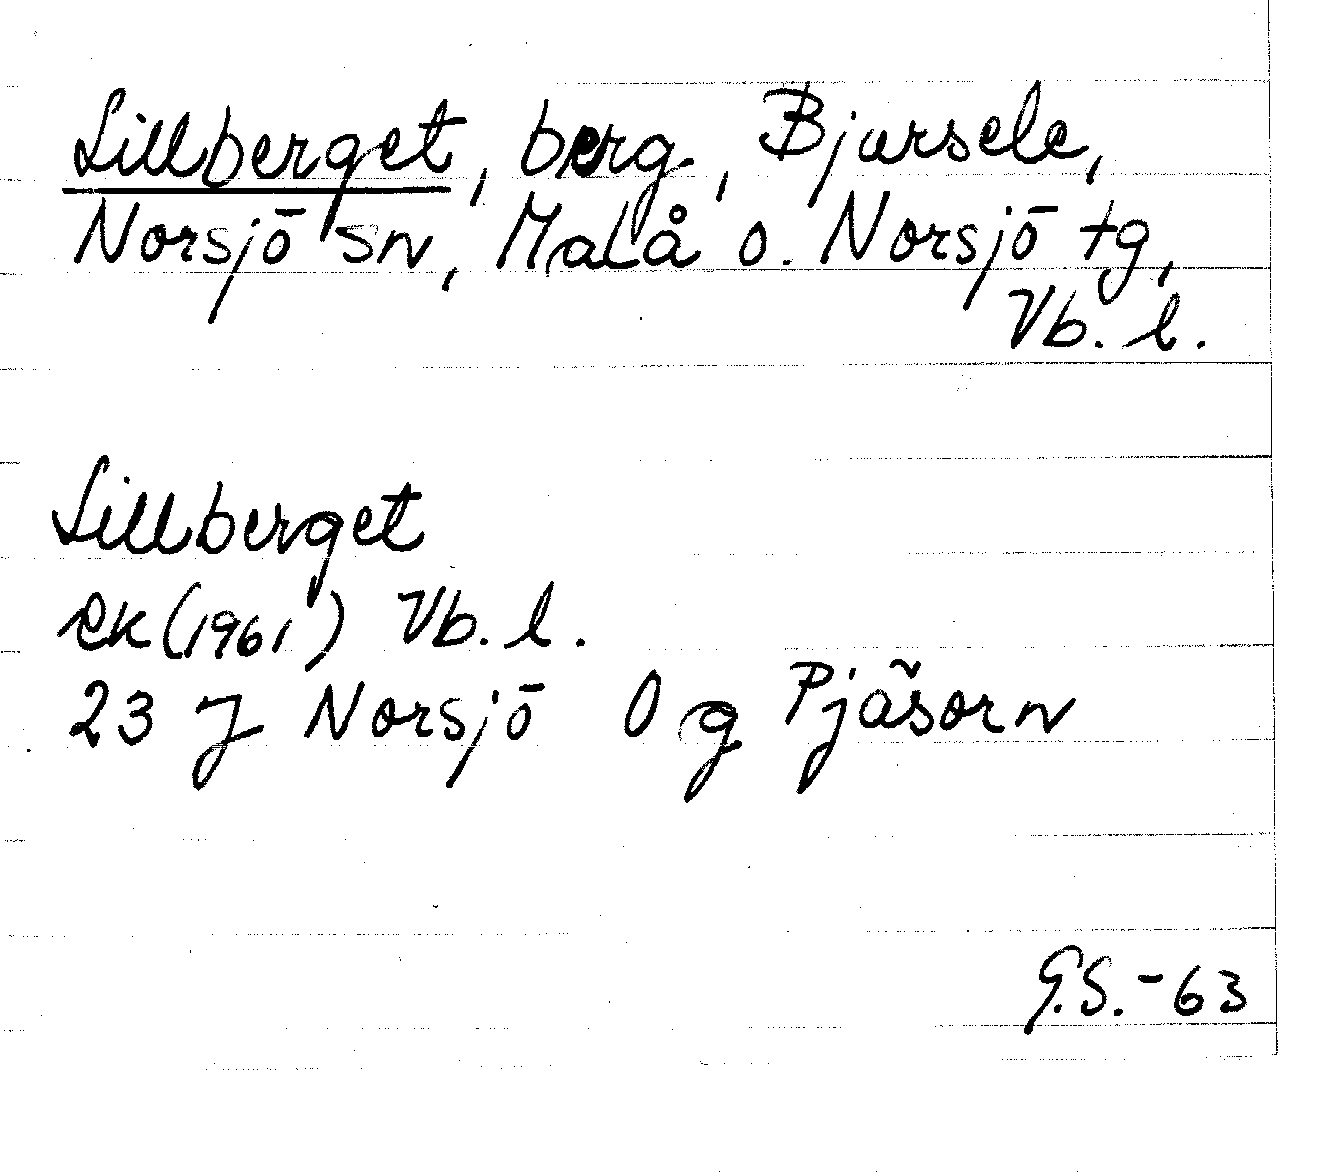 Lillberget, berg, Bjursele,
Norsjö sn, Malå o. Norsjö tg,
Vb. l.
Lillberget
ek (1961) Vb. l.
23 J Norsjö 0 g Pjäsörn
G.S. - 63